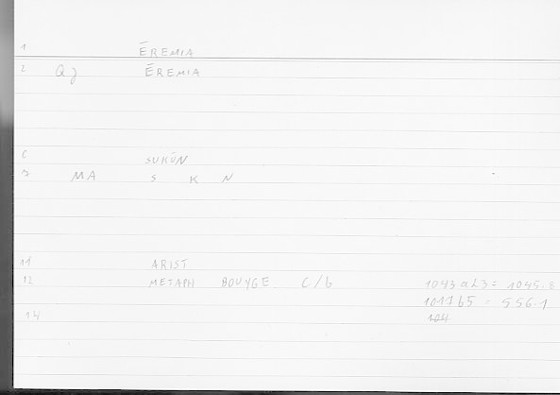 1 ĒREMIA
2 Qj ĒREMIA
SUKŪN
MA S K N
11 ARIST
12 METAPH BOUYGE C/b 1043 a23 = 1045.8
1011b5 = 556.1
14 104